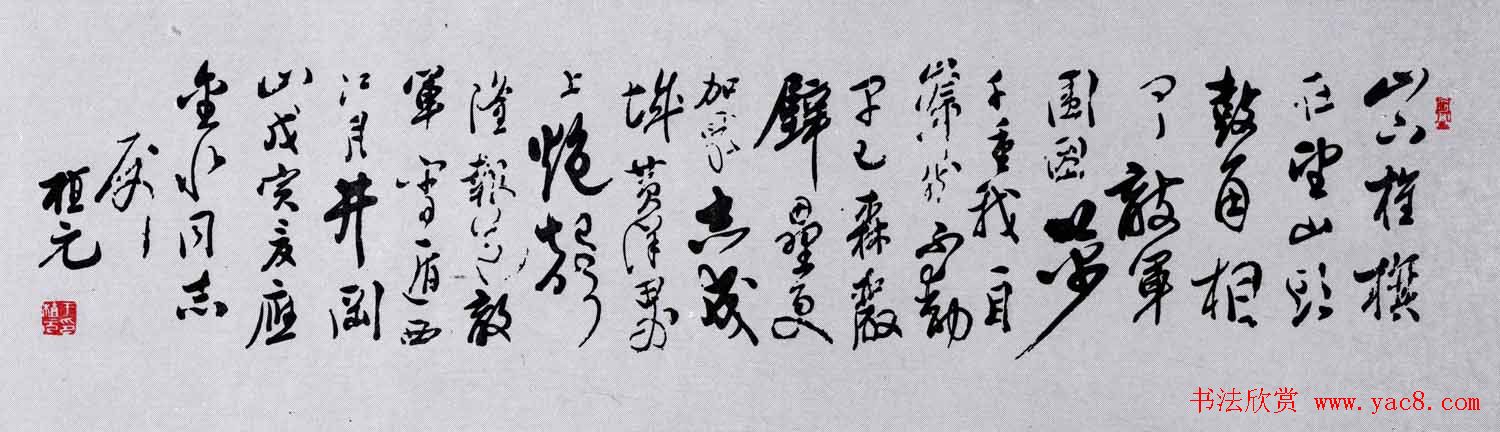 山下旌旗
在望山頭
鼓角相
聞敵軍
圍困萬
千重我自
巋然不動
早已森嚴
壁壘更
加眾志成
城黃洋界
上炮聲
隆報道敵
軍宵遁西
江月井岡
山戊寅夏應
金水同志
屬
植元
于植元印
书法欣赏 www.yac8.com